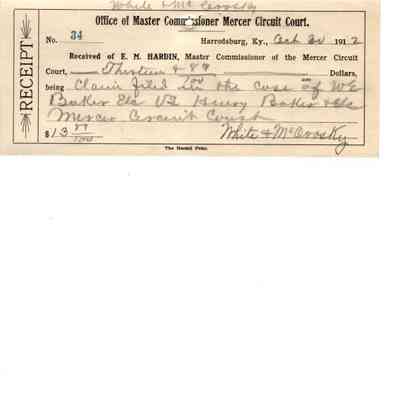 White & McCrosky
Office of Master Commissioner Mercer Circuit Court.
RECEIPT
No. 34 Harrodsburg, Ky., Oct 30 1912
Received of E. M. HARDIN, Master Commissioner of the Mercer Circuit
Court, Thirteen & 89/100 Dollars,
being Claim filed in the case of W E
Baker Etc VS Henry Baker & Etc
Mercer Circuit Court
$13 White & McCrosky
The Herald Print.